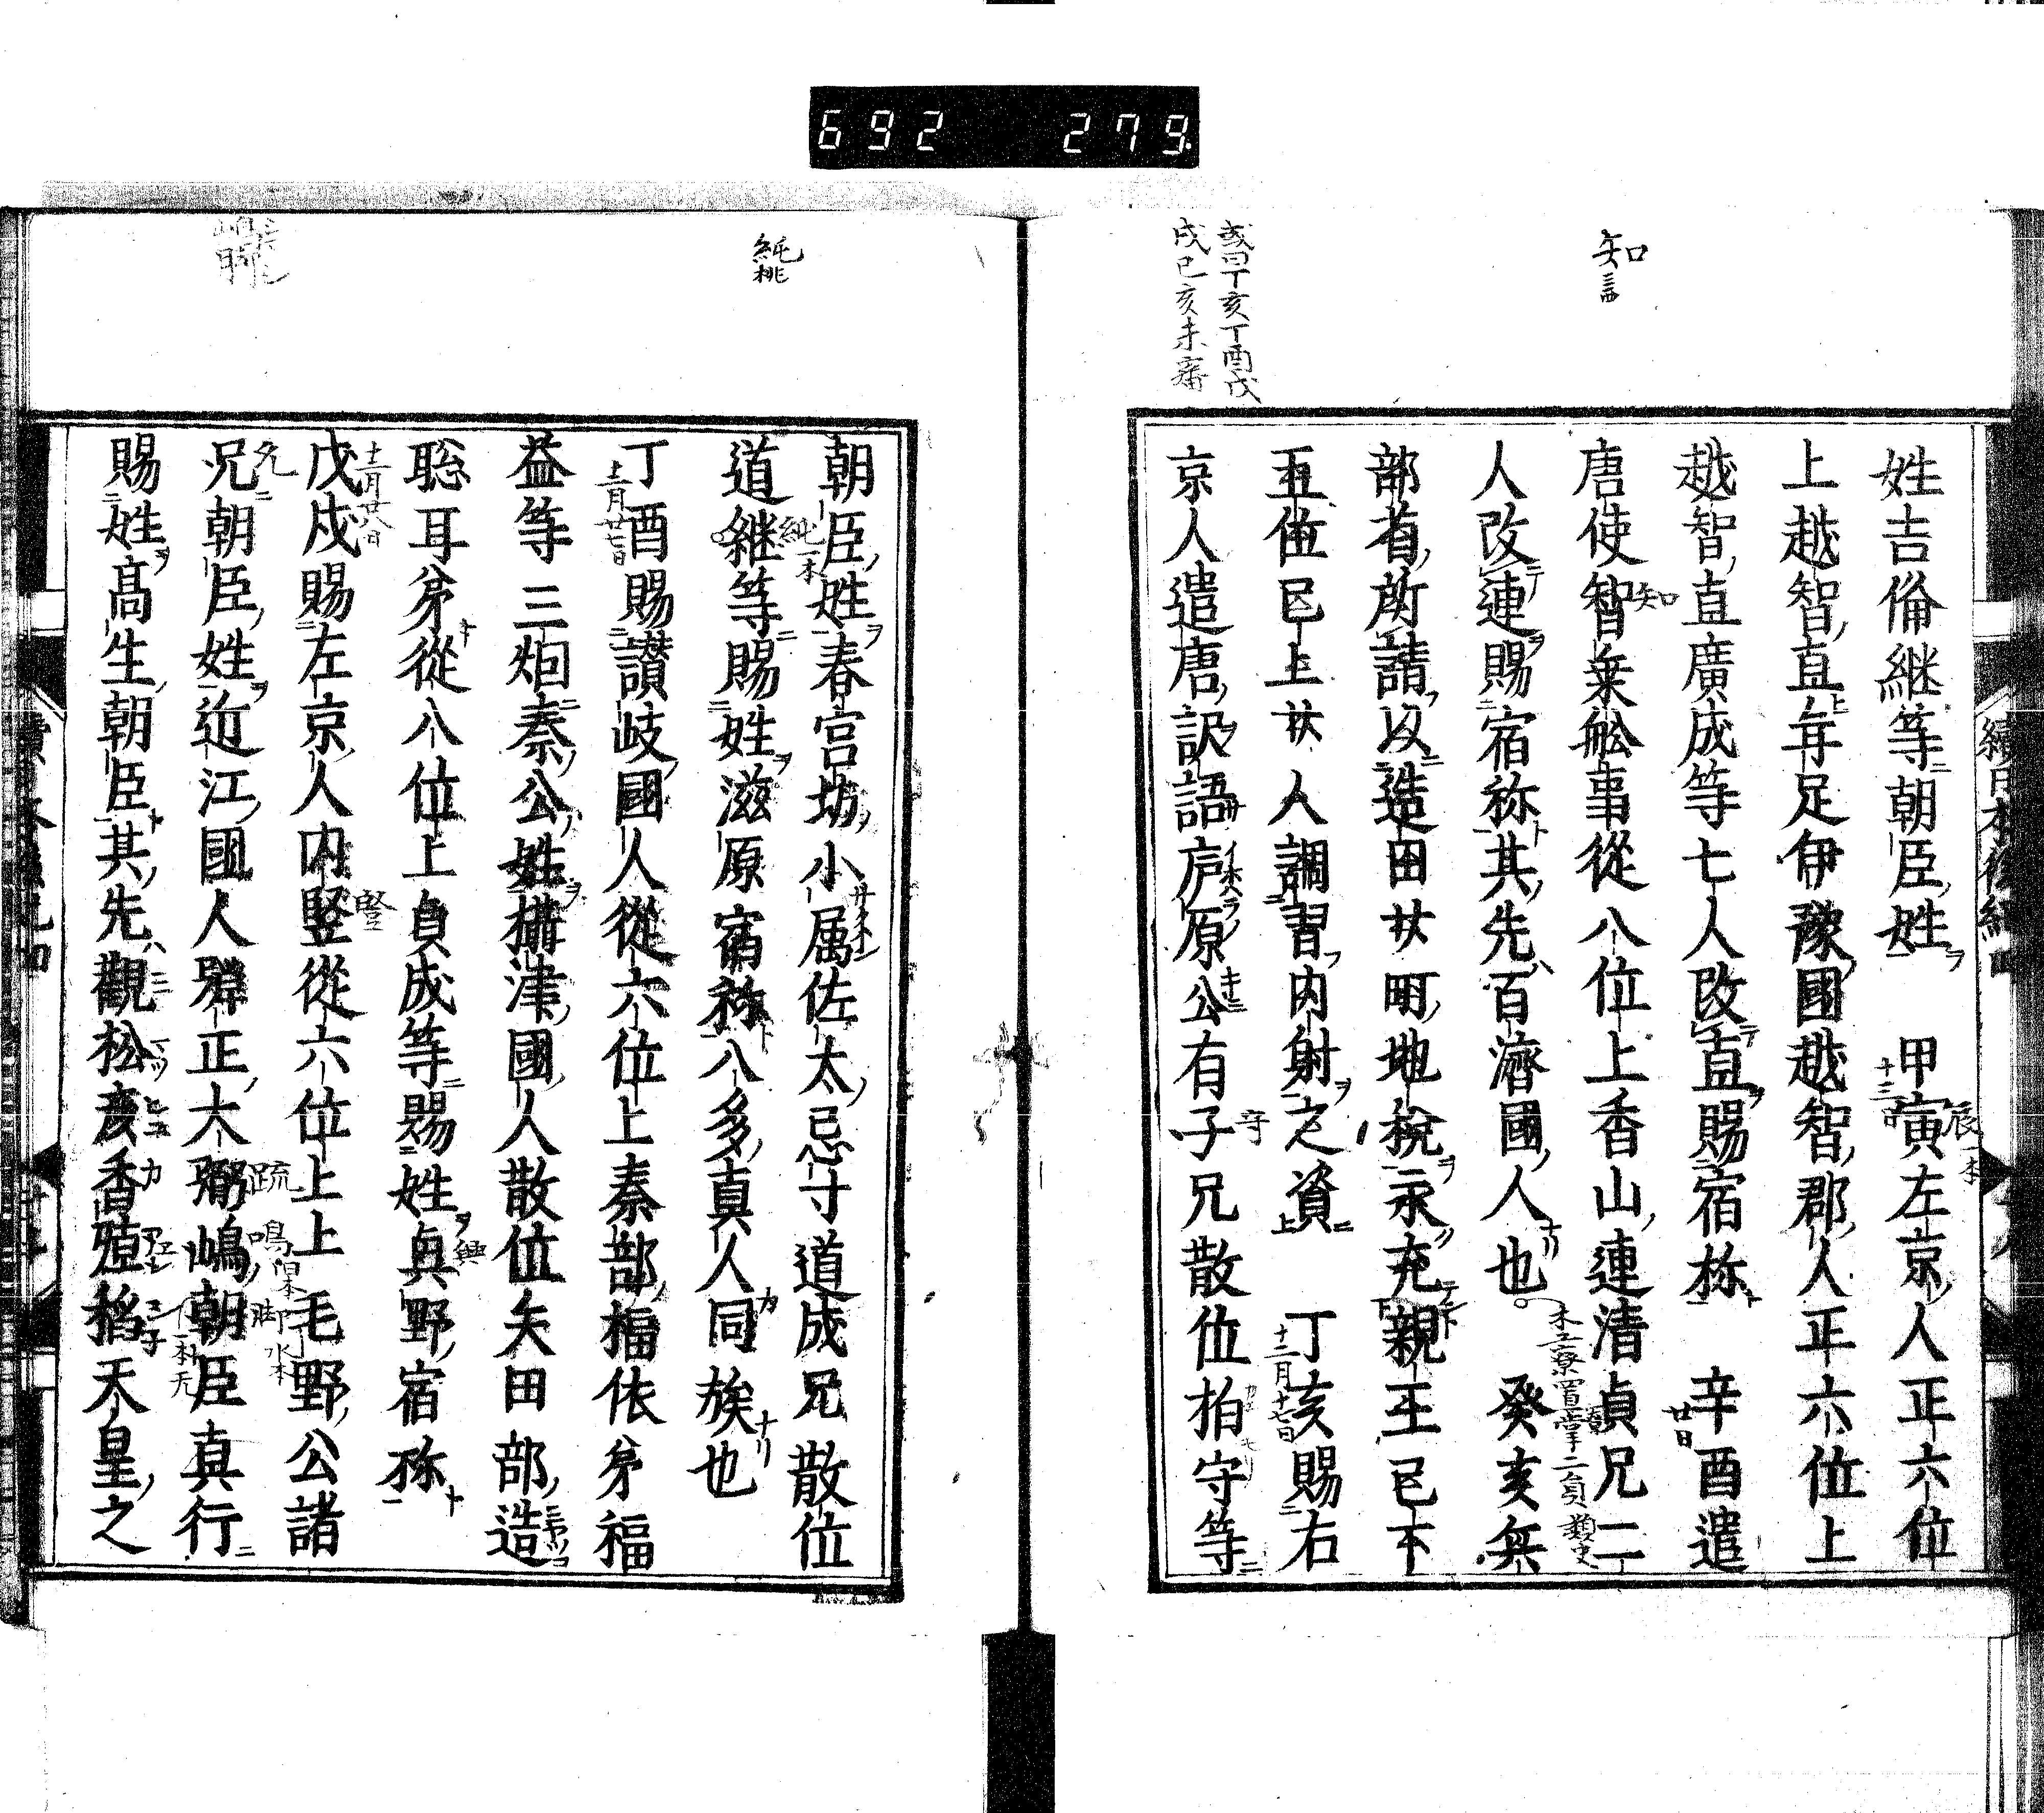 692 279
知
或曰丁亥丁酉戊
戌已亥未審
姓吉倫継等朝臣姓 甲寅左京人正六位
上越智直年足伊豫國越智郡人正六位上
越智直廣成等七人改直賜宿祢 辛酉遣
唐使智乗舩事從八位上香山連清貞兄二
人改連賜宿祢其先百濟國人也 癸亥無
部省所請以造田廿町地税永充親王已下
五位已上廿人調習内射之資 丁亥賜右
京人遣唐訳語庐原公有子兄散位柏守等
純
朝臣姓春宮坊小属佐太忌寸道成兄散位
道継等賜姓滋原宿祢八多真人同族也
丁酉賜讃岐國人從六位上秦部福依弟福
益等三烟秦公姓攝津國人散位矢田部造
聡耳弟從八位上貞成等賜姓真野宿祢
戊戌賜左京人内竪從六位上上毛野公諸
兄朝臣姓近江國人彈正大弼嶋朝臣真行
賜姓高生朝臣其先觀松彦香殖稲天皇之